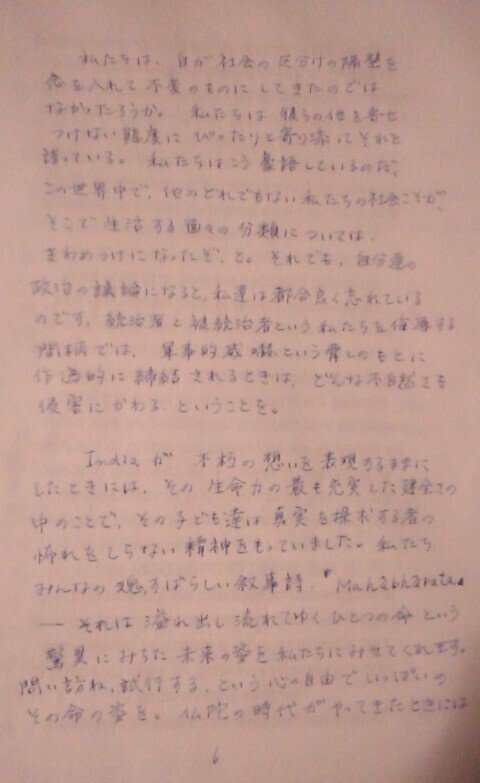 私たちは、自が社会の区分けの隔壁を
念を入れて不変のものにしてきたのでは
なかったろうか。 私たちは 彼らの他を寄せ
つけない態度に ぴったりと寄り添ってそれを
誇っている。 私たちはこう豪語しているのだ、
この世界中で、他のどれでもない私たちの社会こそが、
そこで生活する面々の分類については、
きわめつけになったぞ、と。それでも、自分達の
政治の議論になると、私達は都合良く忘れている
のです。統治者と被統治者という私たちを侮辱する
間柄では、 軍事的威嚇という脅しのもとに
作為的に締結されるときは、どんな不自然さも
侵害にかわる、ということを。
Indiaが 不朽の想いを表現するままに
したときには、その生命力の最も充実した健全さの
中のことで、その子ども達は真実を探求する者の
怖れをしらない精神をもっていました。私たち
みんなの魂、すばらしい叙事詩、Mahābhārata
― それは溢れ出し流れてゆくひとつの命という
驚異にみちた未来の姿を私たちにみせてくれます。
問い訪ね、試行する、という心の自由でいっぱいの
その命の姿を。 仏陀の時代がやってきたときには
6